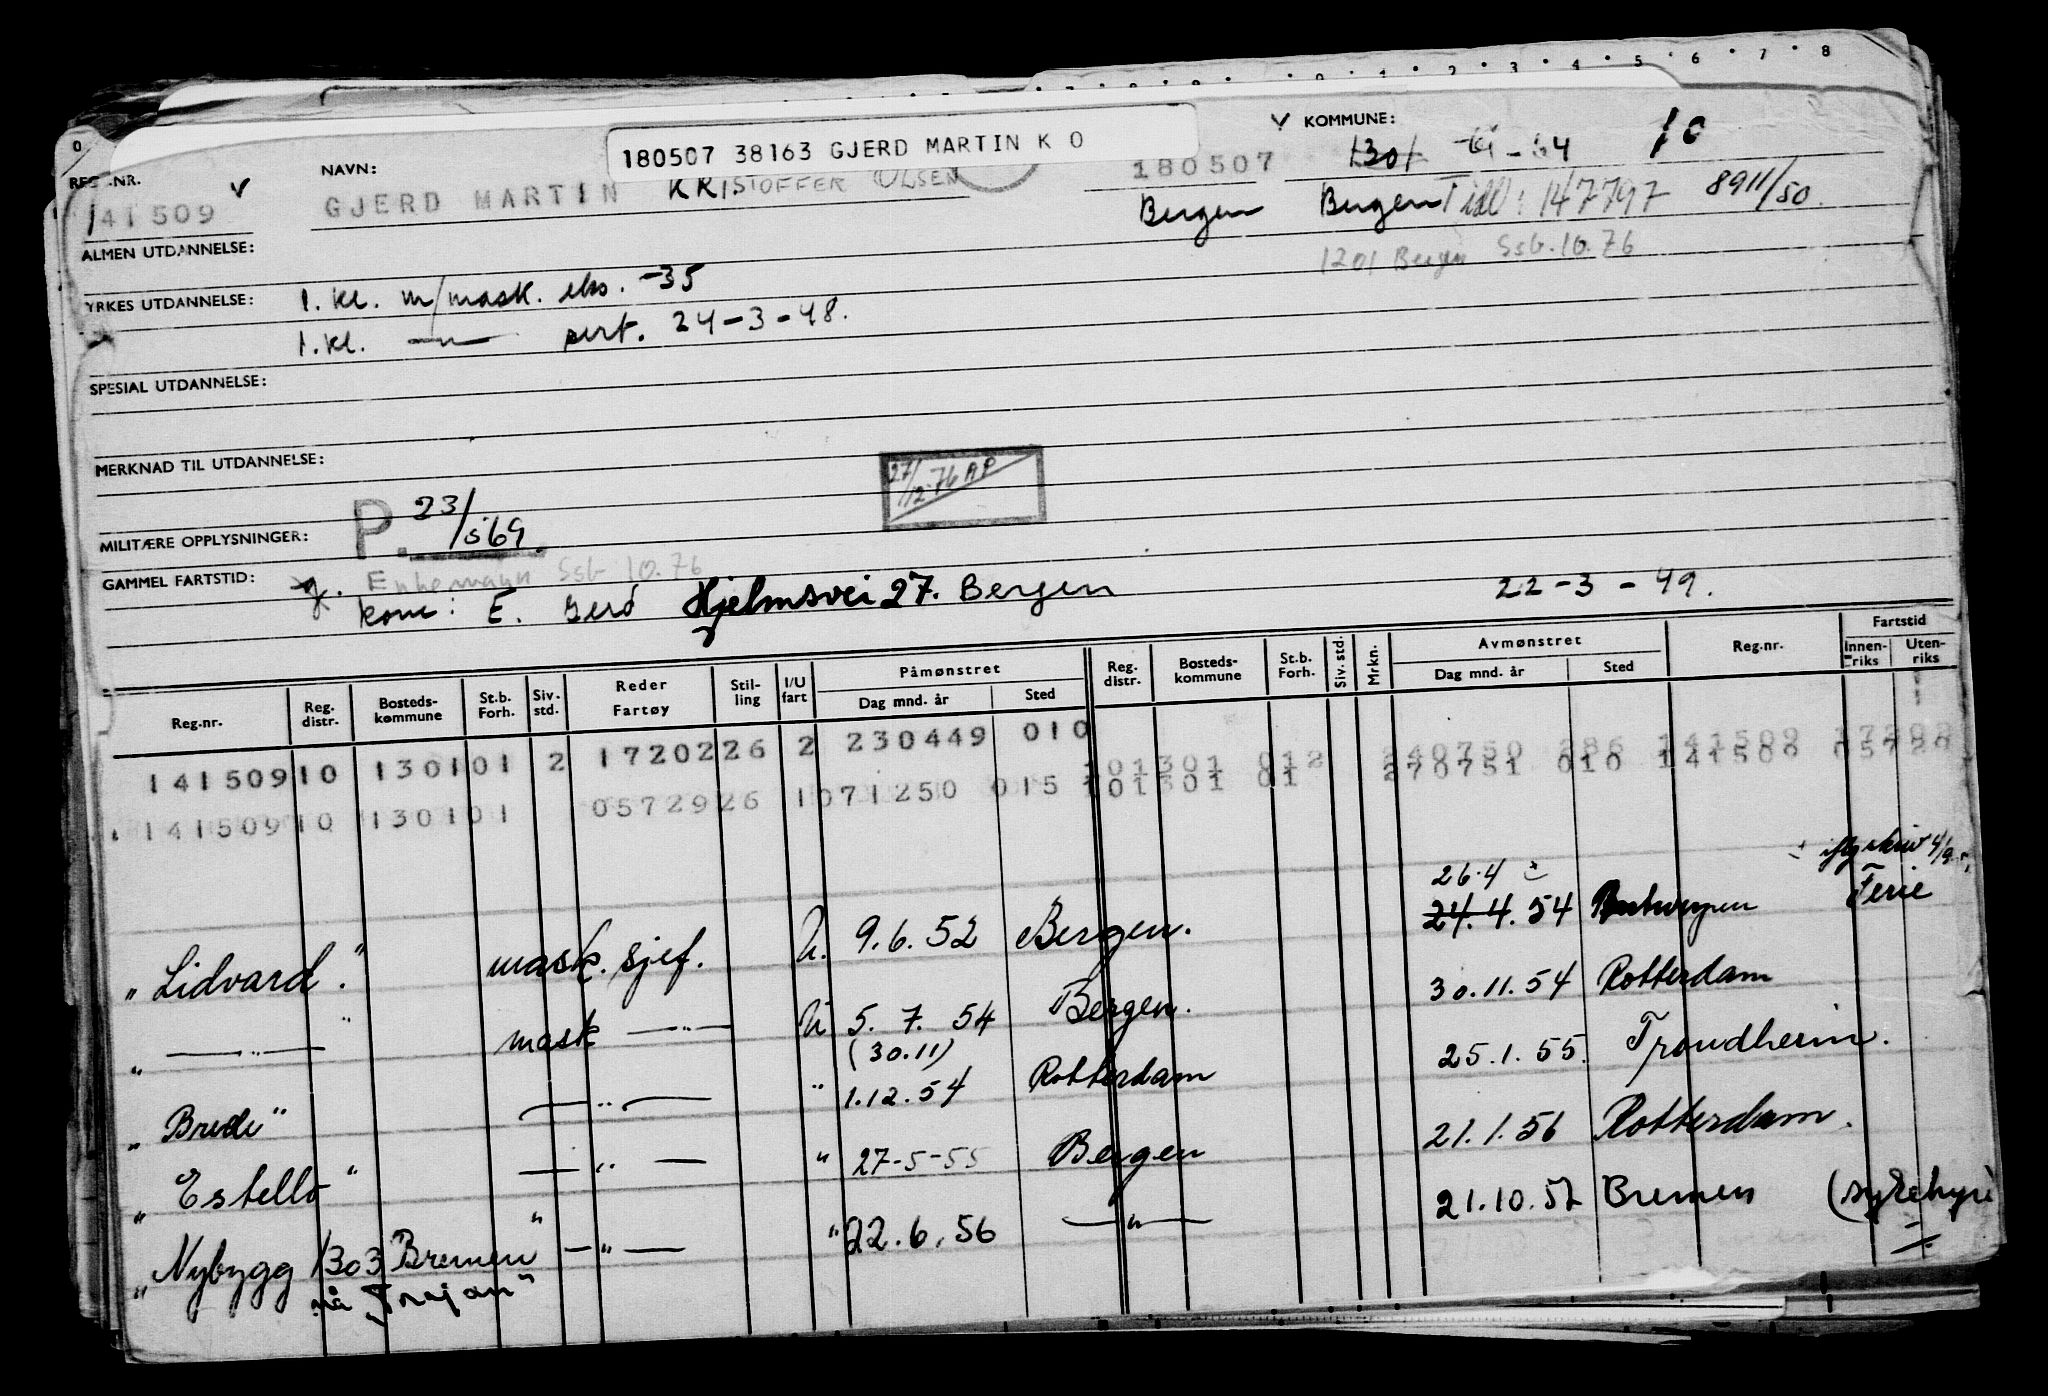 0 1 2 3 4 5 6 7 8
180507 38163 GJERD MARTIN K O
REG.NR. NAVN: 180507 KOMMUNE: 1301 -64 10
141509 GJERD MARTIN KRISTOFFER OLSEN Bergen Bergen Tidl: 147797 8911/50.
ALMEN UTDANNELSE: 1201 Bergen Ssb. 10.76
YRKES UTDANNELSE: 1. kl. m/mask. eks. -35
1. kl. —"— sert. 24-3-48.
SPESIAL UTDANNELSE:
MERKNAD TIL UTDANNELSE:
27/12-76 AP
MILITÆRE OPPLYSNINGER: P. 23/5'69.
GAMMEL FARTSTID: g. Enkemann Ssb 10.76
kone: E. Gerd Hjelmsvei 27. Bergen 22-3-49.
Reg.nr. Reg. distr. Bosteds-kommune St.b. Forh. Siv. std. Reder Fartøy Stil-ling I/U fart Påmønstret Dag mnd. år Sted Reg. distr. Bosteds-kommune St.b. Forh. Siv. std. Mrkn. Avmønstret Dag mnd. år Sted Reg.nr. Fartstid Innen-riks Uten-riks
141509 10 1301 01 2 17202 26 2 230449 010 101301 012 240750 286 141509 17202
141509 10 1301 01 05729 26 1 071250 015 101301 01 270751 010 141509 05729
26.4
"Lidvard". mask. sjef. U. 9.6.52 Bergen. 24.4.54 Antwerpen Ferie
" —"— " mask —"— U 5.7.54 Bergen. 30.11.54 Rotterdam
(30.11)
"Brede" —"— " 1.12.54 Rotterdam 25.1.55. Trondheim.
"Estello" —"— " 27-5-55 Bergen 21.1.56 Rotterdam.
"Nybygg 1303 Bremen" —"— " 22.6.56 —"— 21.10.57 Bremen (sykehyre)
nå Trojan"